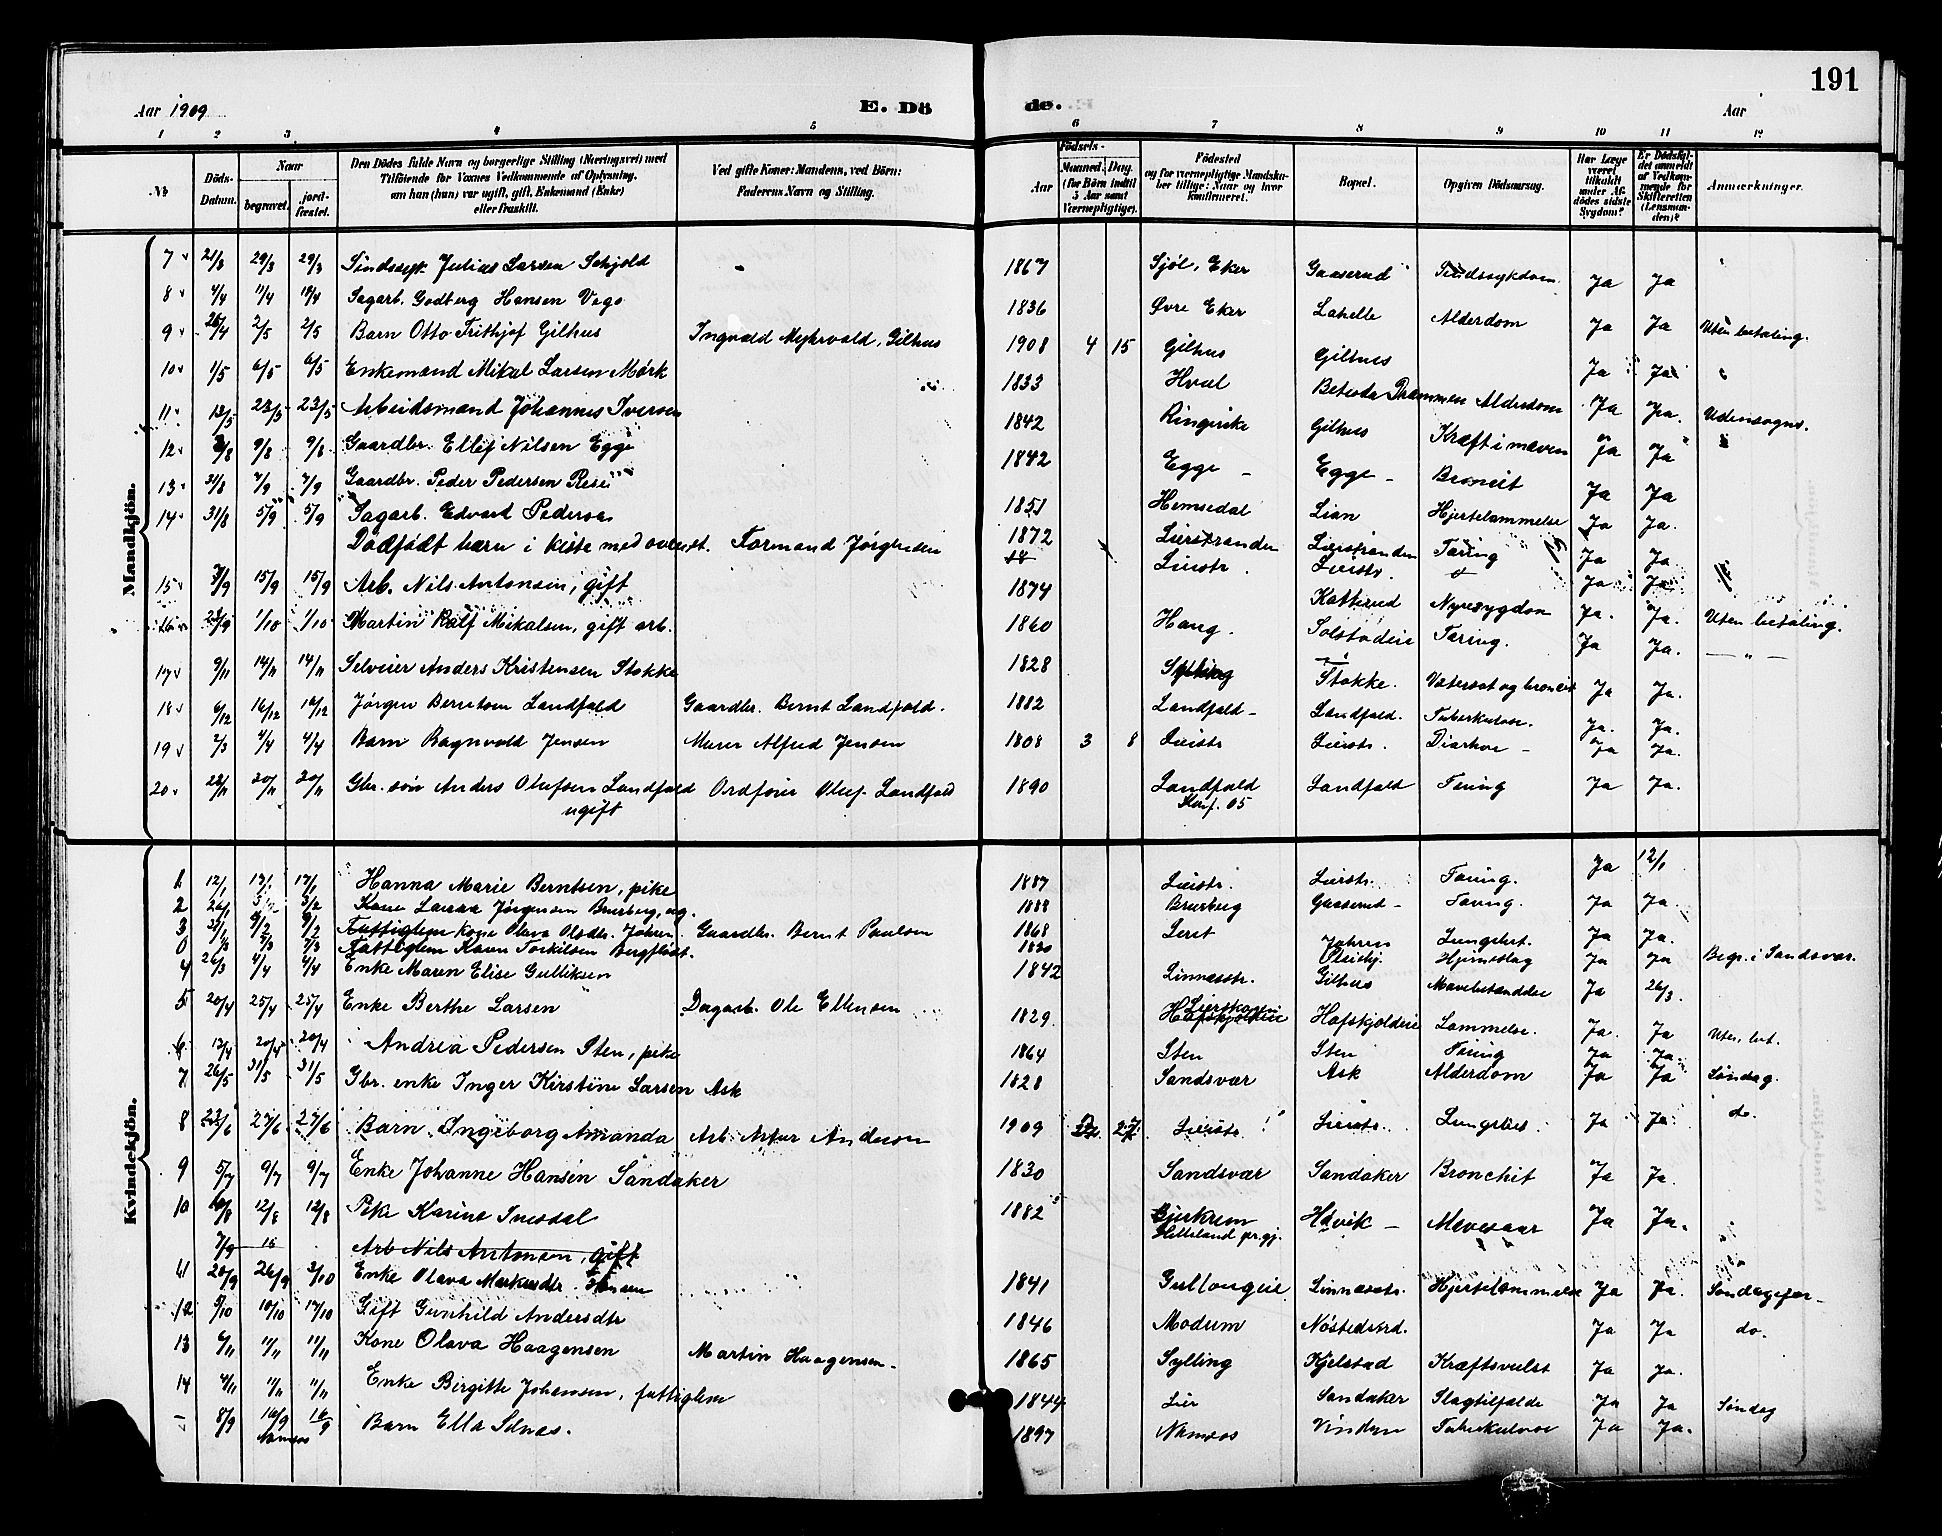 191
Aar 1909
E. Dö
de.
Aar
1 2 3 4 5 6 7 8 9 10 11 12
No
Döds-Datum.
Naar
begravet.
jord-fæstet.
Den Dödes fulde Navn og borgerlige Stilling (Næringsvei) med
Tilföiende for Voxnes Vedkommende af Oplysning,
om han (hun) var ugift, gift, Enkemand (Enke)
eller fraskilt.
Ved gifte Koner: Mandens, ved Börn:
Faderens Navn og Stilling.
Födsels-
Aar
Maaned. Dag.
(for Börn indtil
5 Aar samt
Værnepligtige).
Födested
og for værnepligtige Mandska-
ber tillige: Naar og hvor
konfirmeret.
Bopæl.
Opgiven Dödsaarsag.
Har Læge
været
tilkaldt
under Af-
dödes sidste
Sygdom?
Er Dödsfal-
det anmeldt
af Vedkom-
mende for
Skifteretten
(Lensman-
den)?
Anmærkninger.
Mandkjön.
7 21/3 29/3 29/3 Sindssyk Julius Larsen Schjold 1867 Sjøl, Eker Gaaserud Sindssykdom Ja Ja
8 4/4 11/4 18/4 Sagarb. Godberg Hansen Vego 1836 Øvre Eker Lahelle Alderdom Ja Ja Uten betaling.
9 26/4 2/5 2/5 Barn Otto Frithjof Gilhus Ingvald Meyhrvold, Gilhus 1908 4 15 Gilhus Gilhus Ja Ja
10 1/5 6/5 6/5 Enkemand Mikal Larsen Mørk 1833 Hval Drammen Alderdom Ja Ja. Udensogns.
11 13/5 23/5 23/5 Arbeidsmand Johannes Iversen 1842 Ringerike Gilhus Kræft i maven Ja Ja
12 9/8 9/8 Gaardbr. Ellef Nilsen Egge 1842 Egge Egge Broncit Ja Ja
13 31/8 7/9 7/9 Gaardbr. Peder Pedersen 1851 Hemsedal Lian Hjertelammelse Ja Ja.
14 31/8 5/9 5/9 Sagarb. Edvard Pedersen 1872 Lierstranden Lierstranden Tæring Ja Ja
Dødfødt barn i kiste med Formand Jørgensen Lierstr. Lierstr. Ja Ja
15 7/9 15/9 15/9 Arb. Nils Antonsen, gift 1874 Katterud Nyresygdom Ja. Ja. Uten betaling.
16 1/10 1/10 Martin Rolf Mikalsen, gift arb. 1860 Haug. Solstadeie Tæring. Ja Ja. — " —
17 9/11 14/11 14/11 Selveier Anders Kristensen Stokke 1828 Sylling Stokke. Vatersot og broncit Ja Ja.
18 6/12 16/12 16/12 Jørgen Berntsen Landfald Gaardbr. Bernt Landfald. 1882 Landfald Landfald. Tuberkulose. Ja. Ja.
19 2/3 4/4 4/4 Barn Ragnvald Jensen Murer Alfred Jensen 1808 3 8 Lierstr Lierstr. Diarhoe Ja Ja.
20 20/11 20/11 Gbr. søn Anders Olufsen Landfald Ordfører Oluf Landfald 1890 Landfald Landfald Tæring Ja Ja.
ugift
Konf. 05
Kvindekjön.
1 12/1 17/1 17/1 Hanna Marie Berntsen, pike 1887 Lierstr. Lierstr. Tæring. Ja 12/1
2 3/2 Kone Laura Jørgensen Bruberg, ug. 1888 Bruberg Gaaserud Tæring. Ja Ja.
3 31/1 9/2 9/2 Fattiglem Kone Olava Olsdtr. Johren Gaardbr. Bernt Paulsen 1868 Leret Johren Lungebet. Ja Ja.
0 7/3 7/3 Fattiglem Karen Torkilsen Bergflødt. 1820 Hjerneslag Ja Ja Begr. i Sandsvær.
4 26/3 4/4 4/4 Enke Maren Elise Gulliksen 1842 Linnæsstr. Gilhus Mavebetændelse Ja 26/3.
5 20/4 25/4 25/4 Enke Berthe Larsen Dagarb. Ole Ellensen 1829. Hofskjoldeie Lierskogen Hofskjoldeie Lammelse. Ja. Ja Uten bet.
6 13/4 20/4 20/4 Andrea Pedersen Sten, pike 1864 Sten Sten Tæring Ja Ja
7 26/5 31/5 31/5 Gbr. enke Inger Kirstine Larsen Ask 1828 Sandsvær Ask Alderdom Ja Ja Søndag.
8 23/6 27/6 27/6 Barn Ingeborg Amanda Arb. Artur Andersen 1909 27 Lierstr. Lierstr. Ja Ja. do.
9 5/7 9/7 9/7 Enke Johanne Hansen Sandaker 1830 Sandsvær Sandaker Bronchit Ja Ja.
10 10/8 12/8 12/8 Pike Karine Ivesdal 1882 Bjerkrem Havik Mavesaar Ja Ja.
Helleland pr.gj.
7/9 15 Arb Nils Antonsen, gift
11 20/9 26/9 3/10 Enke Olava Markusdtr. Hansen 1841 Gullaugeie Linnæsstr. Hjertelammelse Ja Ja. Søndagsfor
12 9/10 10/10 17/10 Gift Gunhild Andersdtr 1846 Modum Nøstedjord. Ja Ja do.
13 6/11 11/11 11/11 Kone Olava Haagensen Martin Haagensen. 1865 Sylling Kjelstad Kræftsvulst Ja Ja.
14 4/11 11/11 11/11 Enke Birgitte Johansen, fattiglem 1844 Lier Sandaker Slagtilfælde Ja Ja Søndag
- 8/9 16/9 16/9 Barn Ella Selnæs. 1897 Namsos Tuberkulose Ja Ja.
Namsos